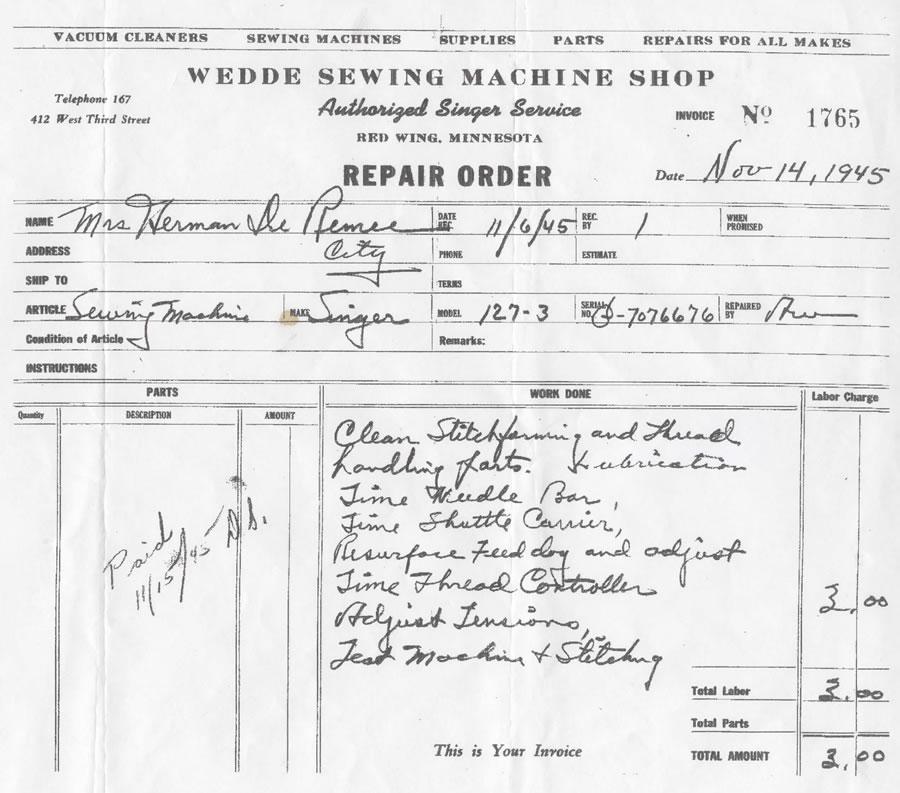 VACUUM CLEANERS SEWING MACHINES SUPPLIES PARTS REPAIRS FOR ALL MAKES
WEDDE SEWING MACHINE SHOP
Telephone 167
412 West Third Street
Authorized Singer Service
RED WING, MINNESOTA
INVOICE No 1765
REPAIR ORDER
Date Nov 14, 1945
NAME Mrs Herman De DATE REC. 11/6/45 REC. BY 1 WHEN PROMISED
ADDRESS City PHONE ESTIMATE
SHIP TO TERMS
ARTICLE Sewing Machine MAKE Singer MODEL 127-3 SERIAL NO. -7076676 REPAIRED BY
Condition of Article Remarks:
INSTRUCTIONS
PARTS WORK DONE Labor Charge
Quantity DESCRIPTION AMOUNT
Clean Stitchforming and Thread
handling parts. Lubrication
Time Needle Bar,
Time Shuttle Carrier,
Resurface Feed dog and adjust
Time Thread Controller
Adjust Tensions,
Test Machine & Stitching
Paid
11/15/45 D.S.
3.00
Total Labor 3.00
Total Parts
TOTAL AMOUNT 3.00
This is Your Invoice